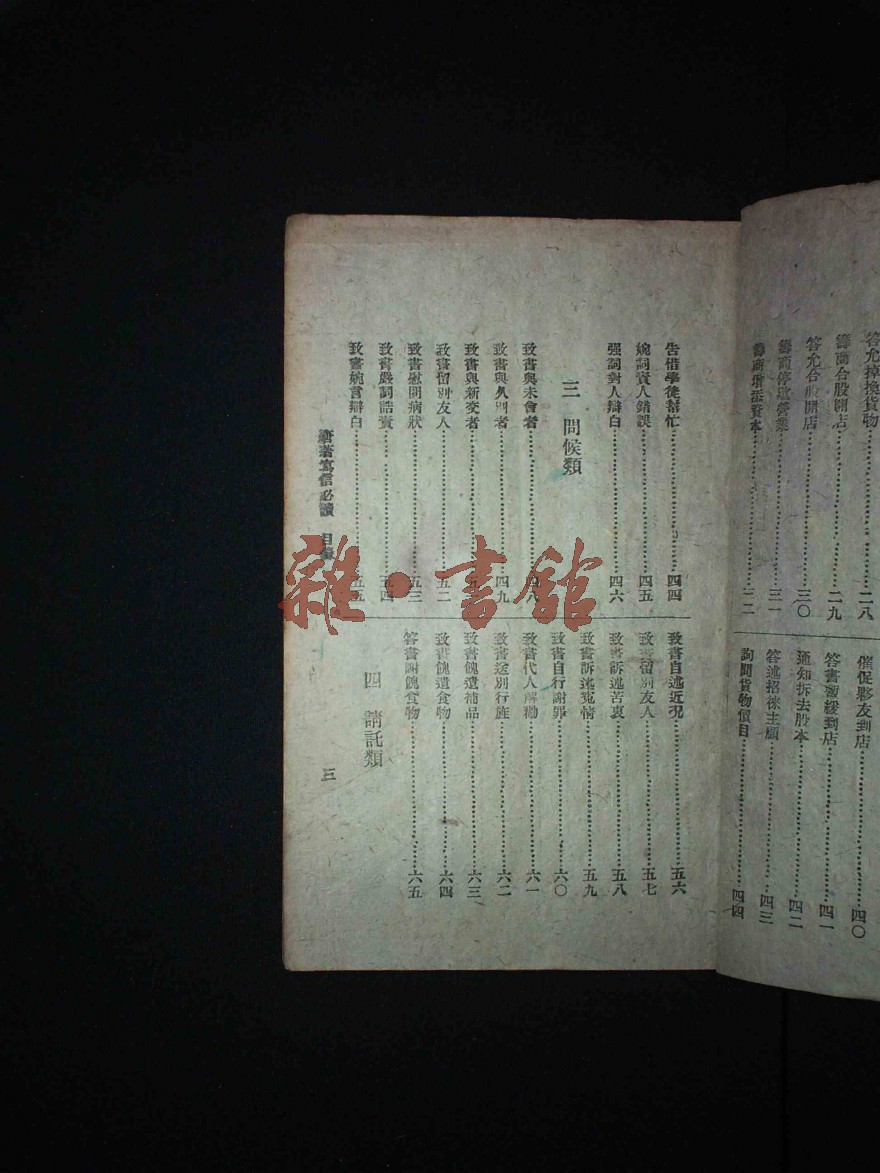 答允掉換貨物……二八
籌商合股開店……二九
答允合股開店……三〇
籌商停還營業……三一
籌商增添資本……三二
催促夥友到店……四〇
答書暫緩到店……四一
通知拆去股本……四二
答述招徠主顧……四三
詢問貨物價目……四四
告借學徒幫忙……四四
婉詞責人錯誤……四五
强詞對人辯白……四六
三 問候類
致書與未會者……四八
致書與久別者……四九
致書與新交者……五
致書留別友人……五二
致書慰問病狀……五三
致書嚴詞詰責……五四
致書婉言辯白……五五
致書自述近況……五六
致書留別友人……五七
致書訴述苦衷……五八
致書訴述冤情……五九
致書自行謝罪……六〇
致書代人解勸……六一
致書送別行旌……六二
致書餽遺補品……六三
致書餽遺食物……六四
答書謝餽食物……六五
四 請託類
寫信必讀 目錄
三
雜·書館